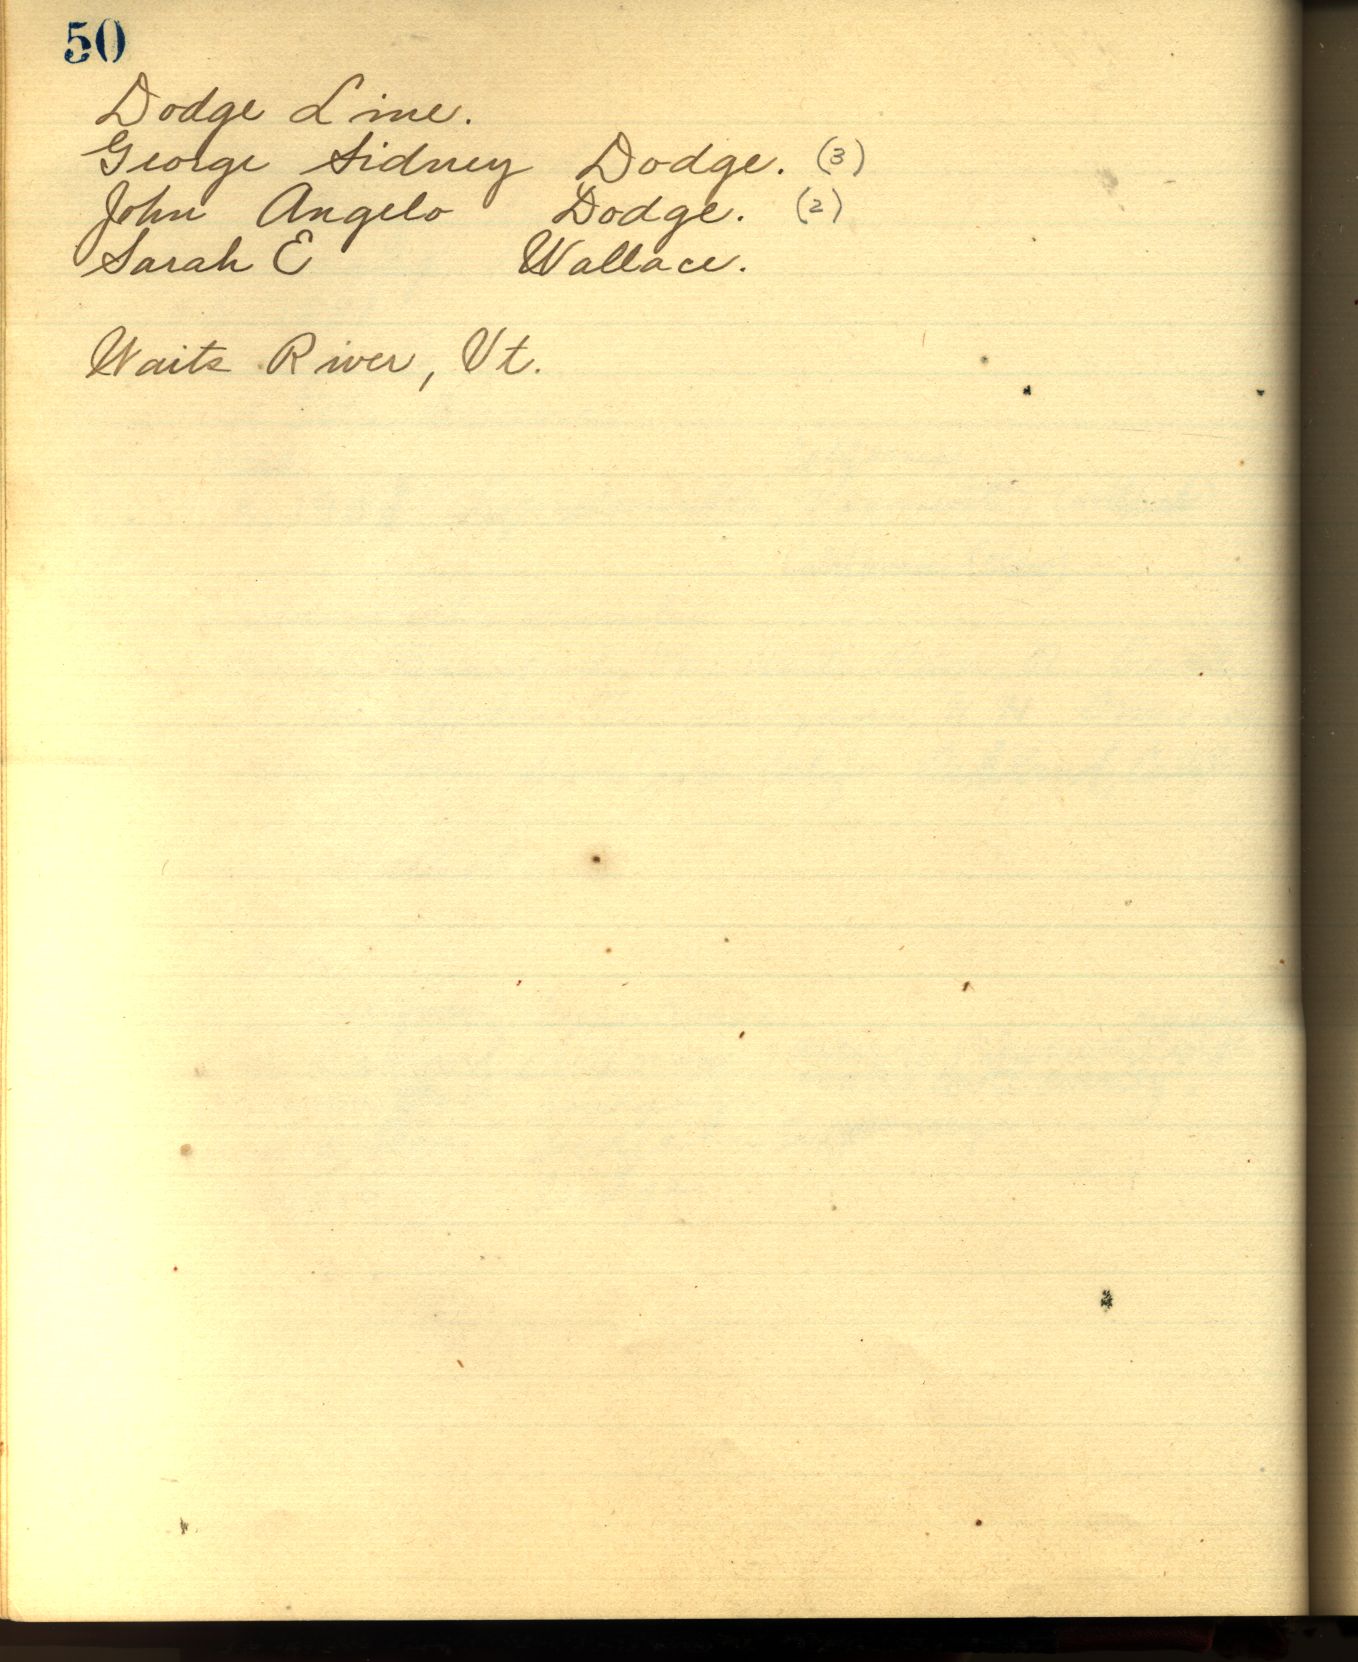 50
Dodge Line.
George Sidney Dodge. (3)
John Angelo Dodge. (2)
Sarah E Wallace.
Waits River, Vt.